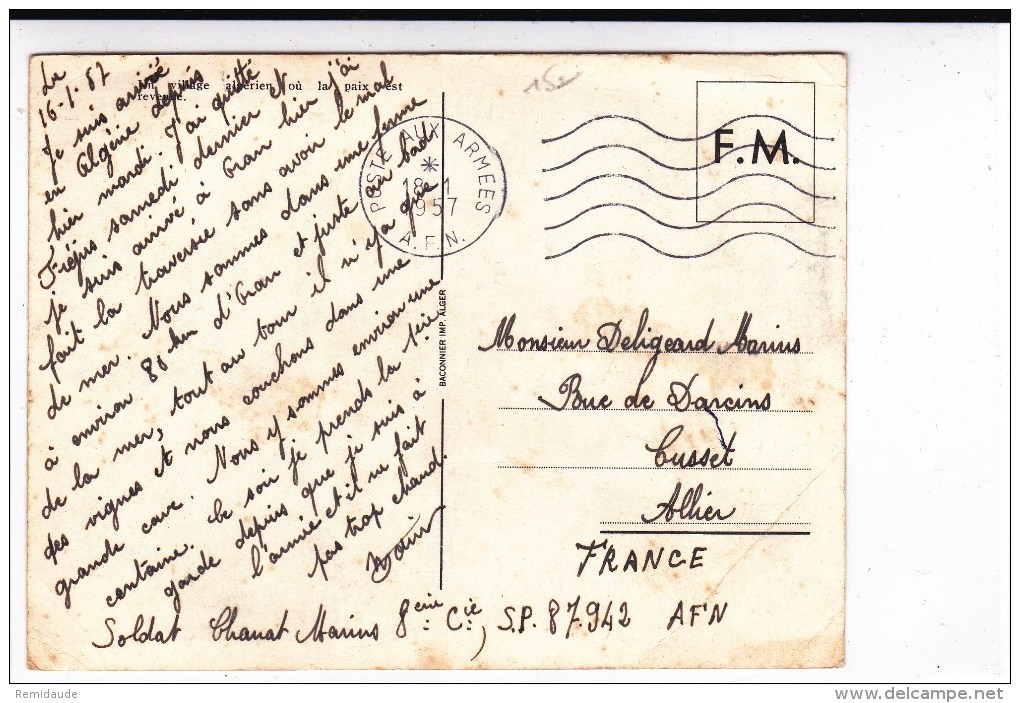 Le
16-1-57
Un village algérien où la paix est
revenue.
Je suis arrivé
en Algérie depuis
hier mardi. J'ai quitté
Fréjus samedi dernier et
je suis arrivé à Oran hier j'ai
fait la traversée sans avoir le mal
de mer. Nous sommes dans une ferme
à environ 80 km d'Oran et juste au bord
de la mer, tout au tour il n'y a que
des vignes et nous couchons dans une
grande cave. Nous y sommes environ une
centaine. Ce soir je prends la 1ère
garde depuis que je suis à
l'armée et il ne fait
pas trop chaud.
Soldat Chanat Marius 8ème Cie, S.P. 87.942 AFN
BACONNIER IMP. ALGER
15e
POSTE AUX ARMEES
*
18-1
1957
A.F.N.
F.M.
Monsieur Deligeard Marius
Rue de Darcins
Cusset
Allier
FRANCE
Remidaude
www.delcampe.net